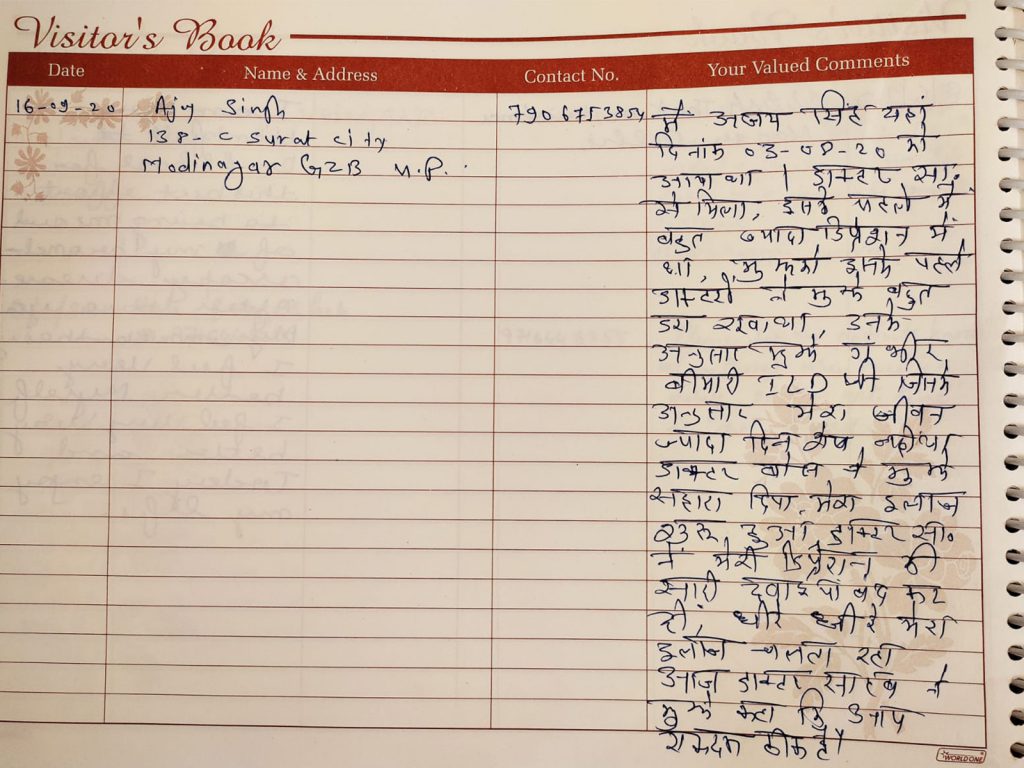 Visitor's Book
Date Name & Address Contact No. Your Valued Comments
16-09-20 Ajay Singh 7906753854 मै अजय सिंह यहां
138-C Surat City दिनांक 03-08-20 को
Modinagar GZB U.P. आया था । डाक्टर सा.
से मिला, इससे पहले मैं
बहुत ज्यादा डिप्रेशन में
था, मुझको इसके पहले
डाक्टरों ने मुझे बहुत
डरा रखा था, उनके
अनुसार मुझे गंभीर
बीमारी ILD थी जिसके
अनुसार मेरा जीवन
ज्यादा दिन शेष नहीं था
डाक्टर ने मुझे
सहारा दिया, मेरा इलाज
शुरू हुआ, डाक्टर सा.
ने मेरी डिप्रेशन की
सारी दवाइयां बंद कर
दी, धीरे धीरे मेरा
इलाज चलता रहा
आज डाक्टर साहब ने
मुझे कहा कि आप
एकदम ठीक हैं।
WORLDONE